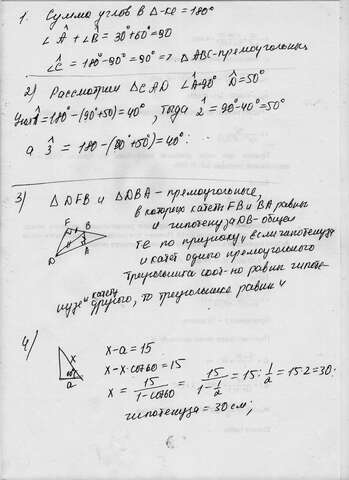 1. Сумма углов в Δ-ке = 180°
∠Â + ∠B̂ = 30° + 60° = 90
∠Ĉ = 180° - 90° = 90° => ΔABC - прямоугольный
2) Рассмотрим ΔCAD ∠Â=90° D̂=50°
1̂ = 180° - (90°+50°) = 40°, тогда 2̂ = 90° - 40° = 50°
а 3̂ = 180 - (90° + 50°) = 40°.
3) ΔDFB и ΔDBA - прямоугольные,
в которых катеты FB и BA равны
и гипотенуза DB - общая
F B
A
D
те по признаку „если гипотенуза
и катет одного прямоугольного
треугольника соот-но равны гипоте-
нузе и катету другого, то треугольники равны"
4)
60°
a
x - a = 15
x - x·cos60 = 15
x = 15 / (1 - cos60) = 15 / (1 - 1/2) = 15 : 1/2 = 15·2 = 30.
гипотенуза = 30 см;